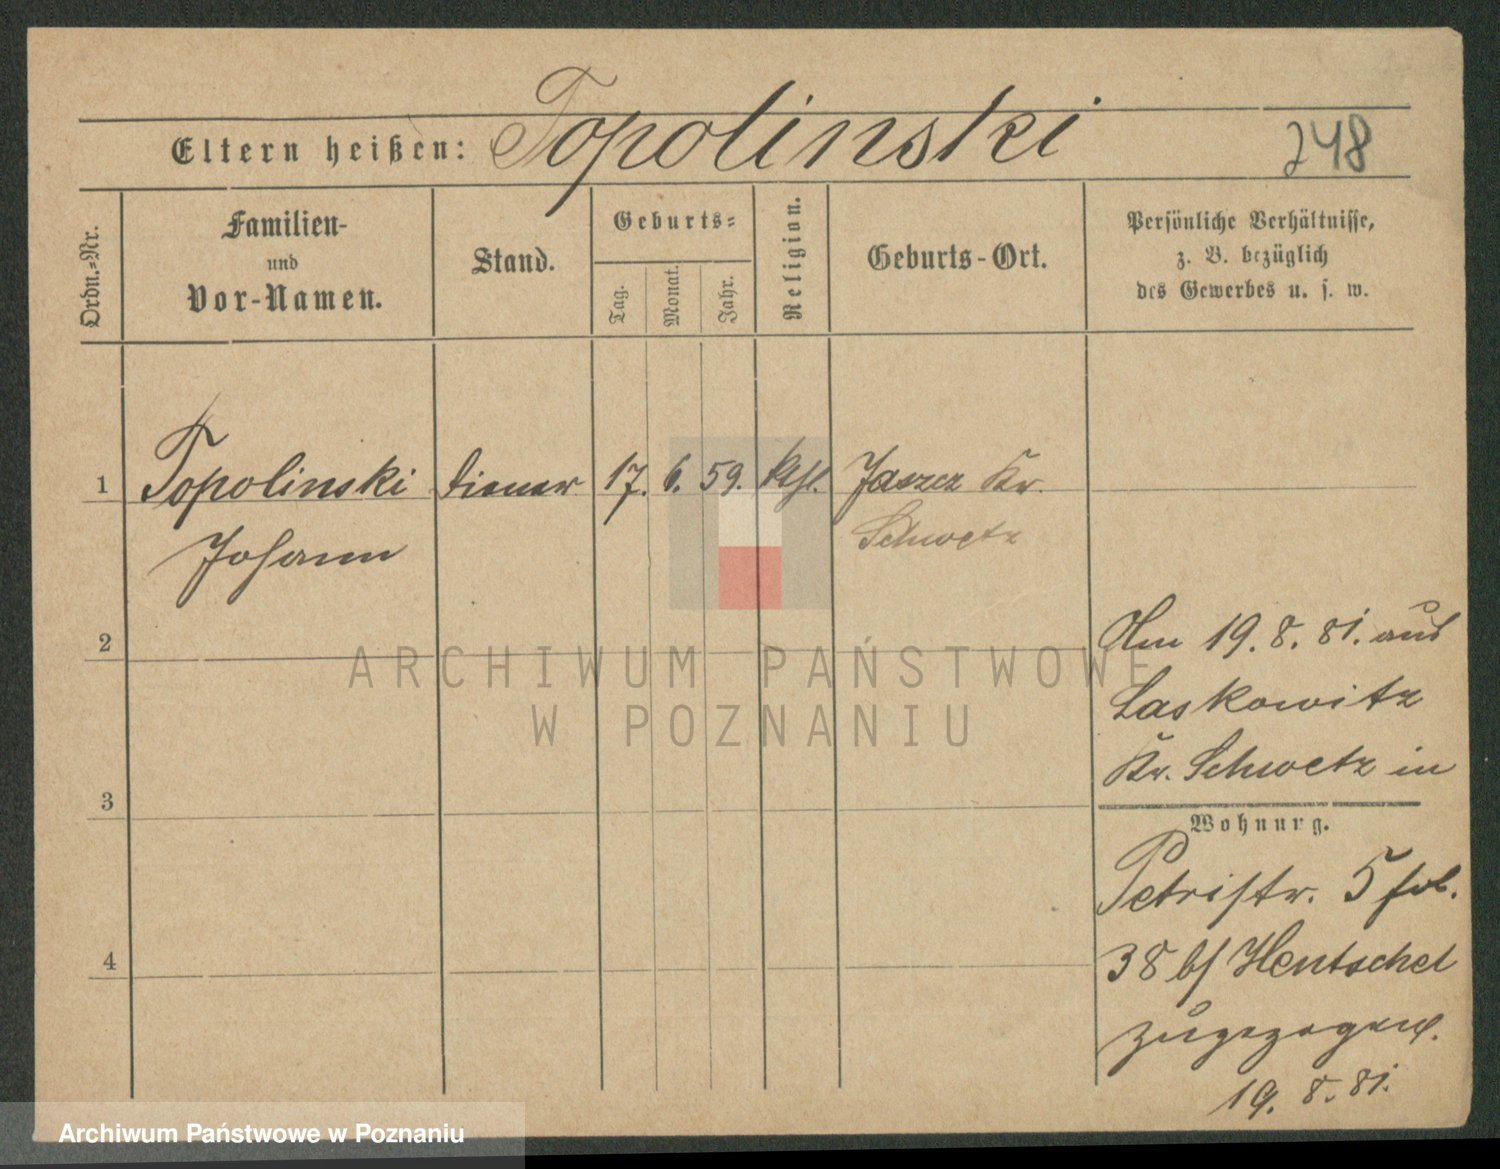 Eltern heißen: Topolinski 248
Ordn.=Nr.
Familien-
und
Vor-Namen.
Stand.
Geburts=
Tag.
Monat.
Jahr.
Religion.
Geburts-Ort.
Persönliche Verhältnisse,
z. B. bezüglich
des Gewerbes u. s. w.
1 Topolinski Diener 17. 6. 59. kthl. Jaszcz Kr.
Johann Schwetz
2
Am 19. 8. 81. aus
Laskowitz
Kr. Schwetz in
3
Wohnung.
Petristr. 5 fol.
38 b/ Hentschel
4
zugezogen.
19. 8. 81.
ARCHIWUM PAŃSTWOWE
W POZNANIU
Archiwum Państwowe w Poznaniu